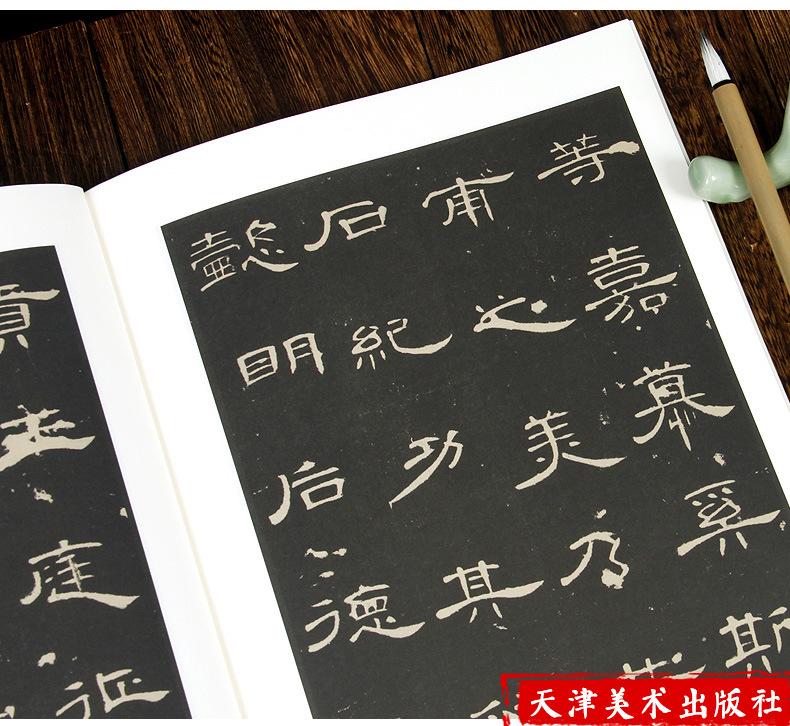 等嘉慕奚斯
甫之美乃
石紀功其
懿明后德
貢王庭征
天津美术出版社